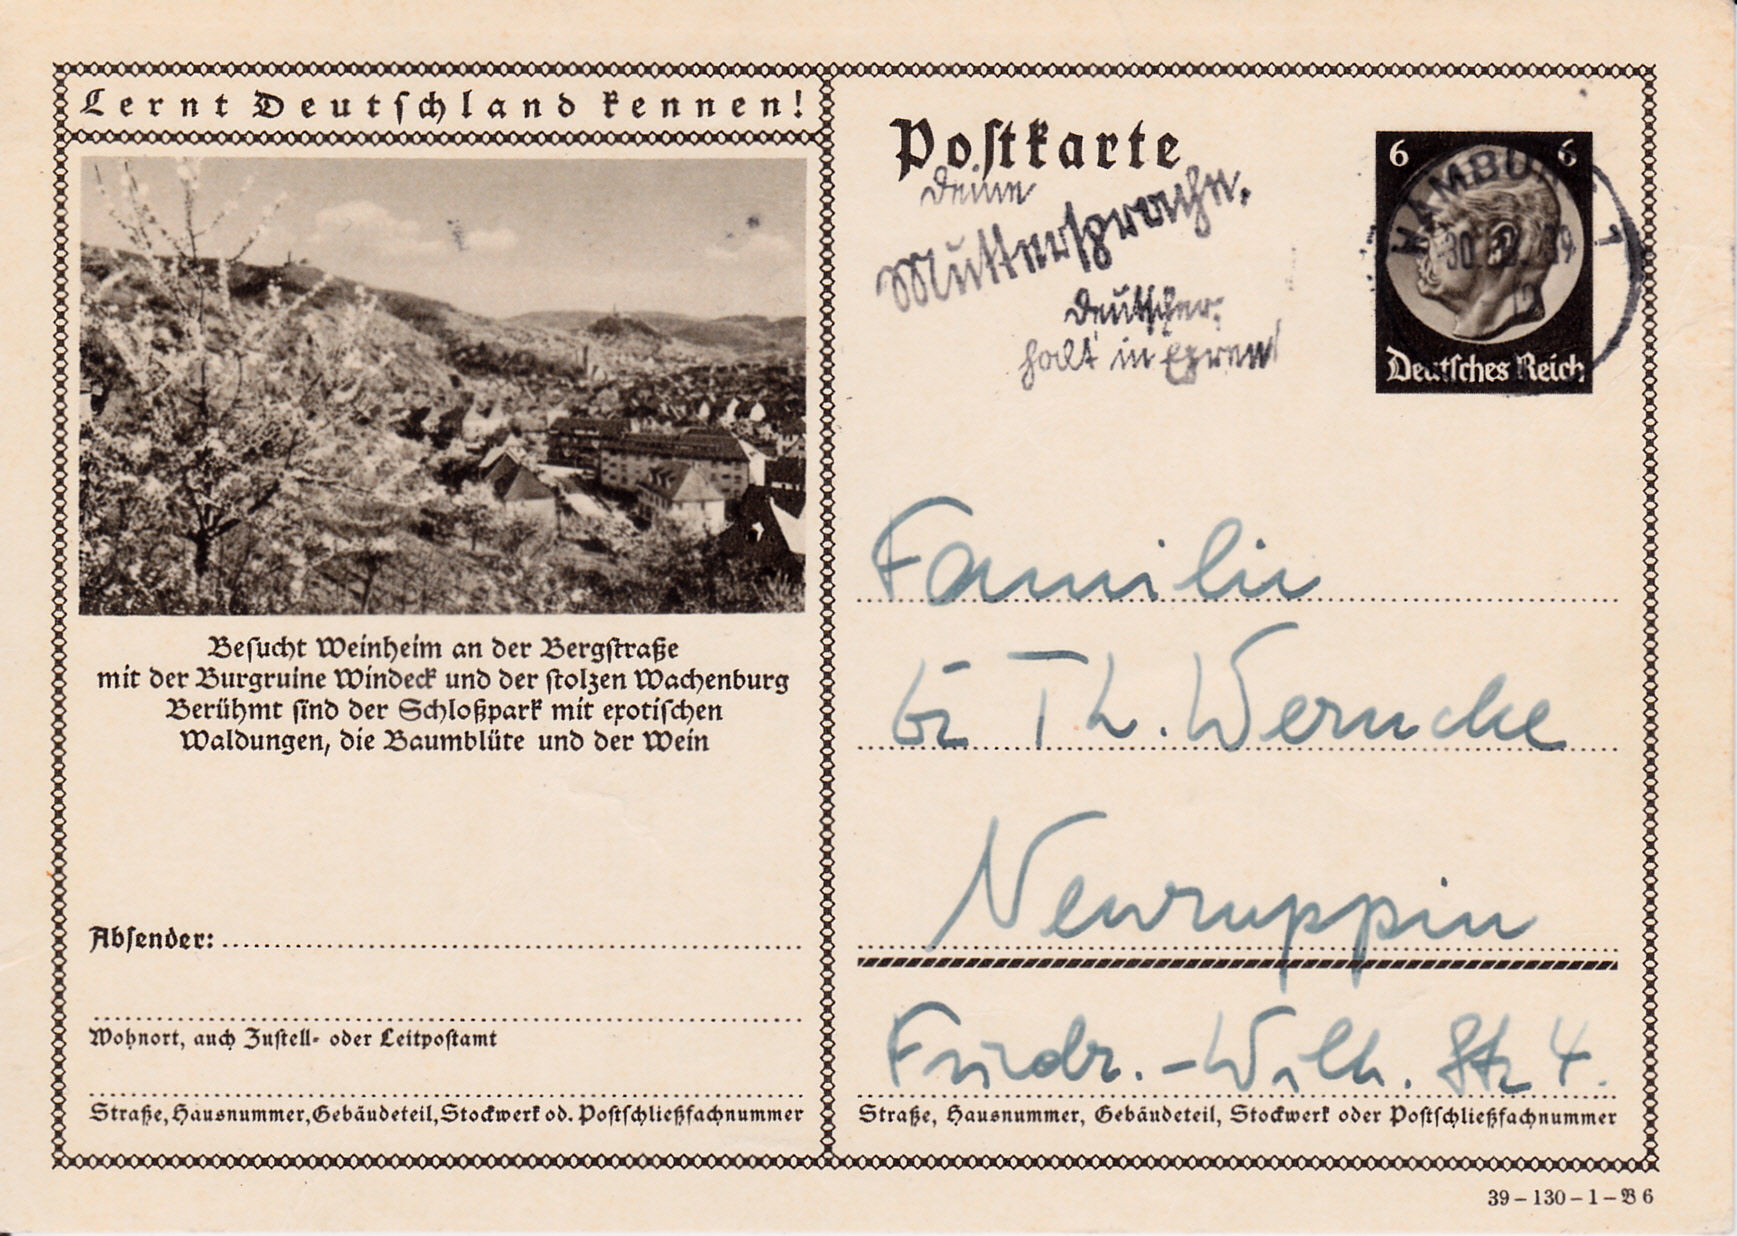 Lernt Deutschland kennen!
Besucht Weinheim an der Bergstraße
mit der Burgruine Windeck und der stolzen Wachenburg
Berühmt sind der Schloßpark mit exotischen
Waldungen, die Baumblüte und der Wein
Absender:
Wohnort, auch Zustell- oder Leitpostamt
Straße, Hausnummer, Gebäudeteil, Stockwerk od. Postschließfachnummer
Postkarte
Deine
Muttersprache.
Deutscher,
halt in Ehren!
6 6
HAMBURG 1
30 39
12
Deutsches Reich
Familie
Th. Wernicke
Neuruppin
Friedr.-Wilh. Str 4.
Straße, Hausnummer, Gebäudeteil, Stockwerk oder Postschließfachnummer
39-130-1-B 6